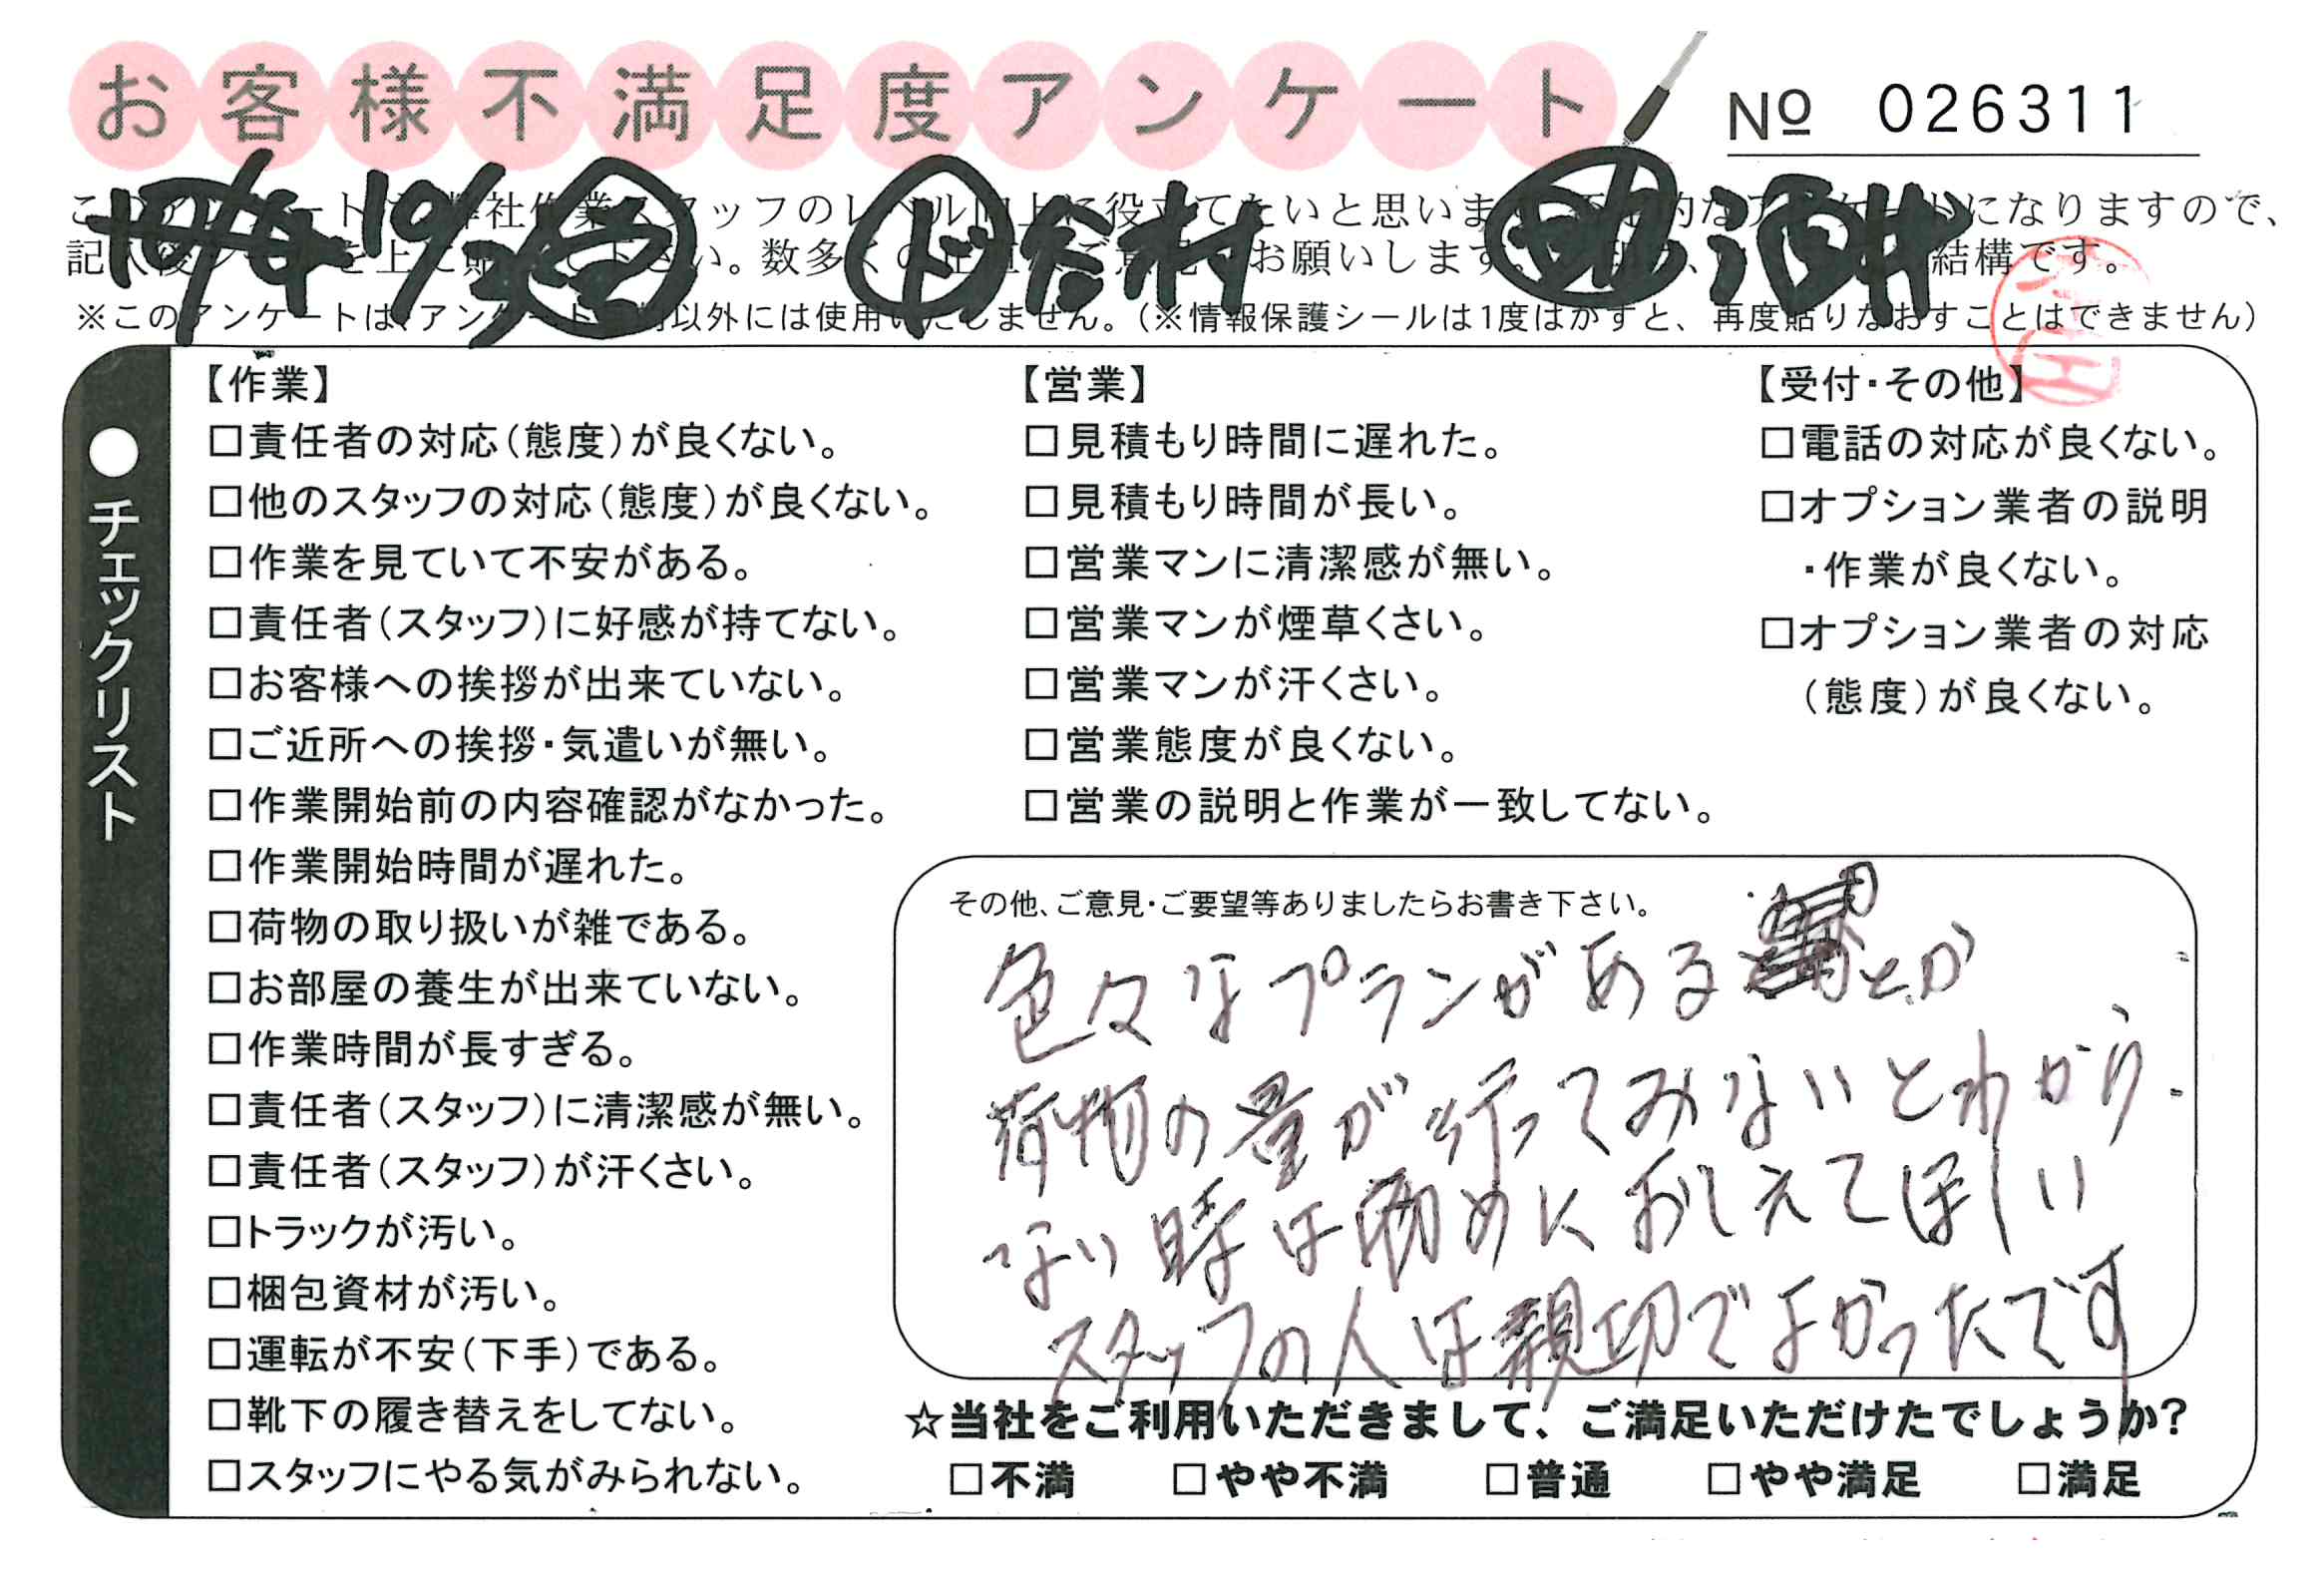 お客様不満足度アンケート
No 026311
10/3 金 ド 谷村 助 酒井
※このアンケートは、アン 以外には使用いたしません。(※情報保護シールは1度はがすと、再度貼りなおすことはできません)
●チェックリスト
【作業】
□責任者の対応(態度)が良くない。
□他のスタッフの対応(態度)が良くない。
□作業を見ていて不安がある。
□責任者(スタッフ)に好感が持てない。
□お客様への挨拶が出来ていない。
□ご近所への挨拶・気遣いが無い。
□作業開始前の内容確認がなかった。
□作業開始時間が遅れた。
□荷物の取り扱いが雑である。
□お部屋の養生が出来ていない。
□作業時間が長すぎる。
□責任者(スタッフ)に清潔感が無い。
□責任者(スタッフ)が汗くさい。
□トラックが汚い。
□梱包資材が汚い。
□運転が不安(下手)である。
□靴下の履き替えをしてない。
□スタッフにやる気がみられない。
【営業】
□見積もり時間に遅れた。
□見積もり時間が長い。
□営業マンに清潔感が無い。
□営業マンが煙草くさい。
□営業マンが汗くさい。
□営業態度が良くない。
□営業の説明と作業が一致してない。
【受付・その他】
□電話の対応が良くない。
□オプション業者の説明
・作業が良くない。
□オプション業者の対応
(態度)が良くない。
その他、ご意見・ご要望等ありましたらお書き下さい。
色々なプランがあるとか
荷物の量が行ってみないとわから
ない時は初めにおしえてほしい
スタッフの人は親切でよかったです
☆当社をご利用いただきまして、ご満足いただけたでしょうか?
□不満 □やや不満 □普通 □やや満足 □満足